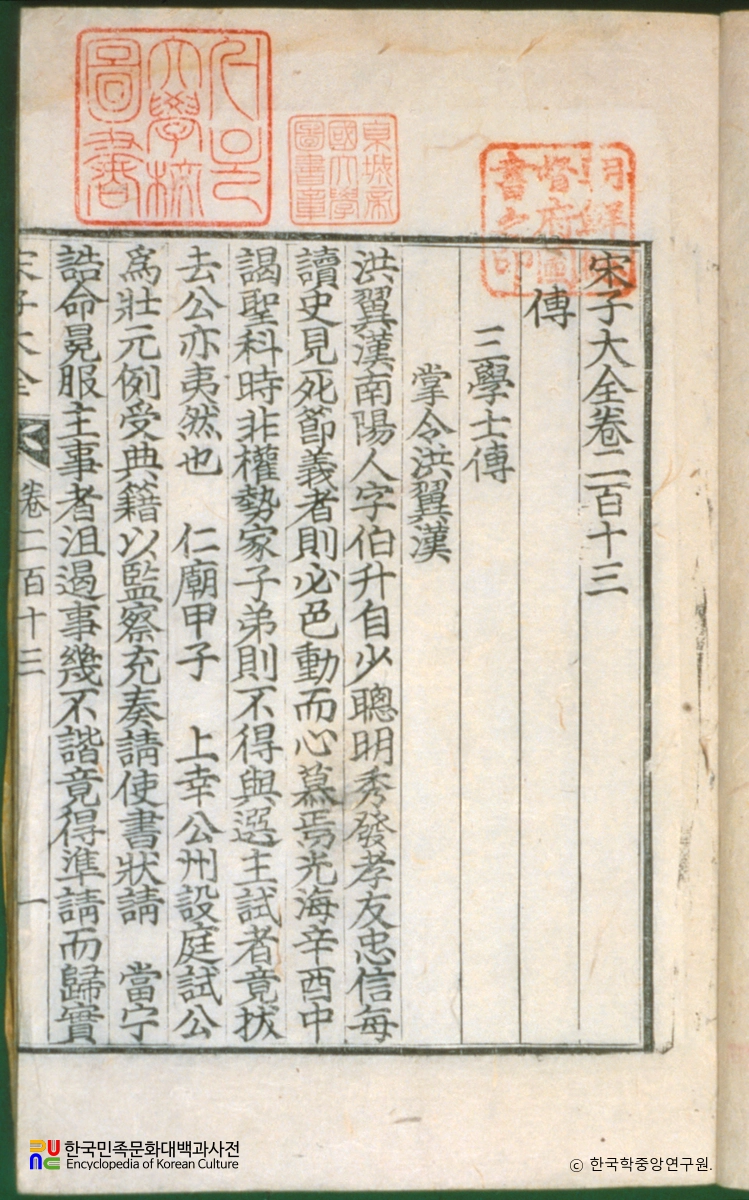 朝鮮總
督府圖
書之印
京城帝
國大學
圖書章
서울
大學校
圖書
宋子大全卷二百十三
傳
三學士傳
掌令洪翼漢
洪翼漢南陽人字伯升自少聰明秀發孝友忠信每
讀史見死節義者則必色動而心慕焉光海辛酉中
謁聖科時非權勢家子弟則不得與選主試者竟拔
去公亦夷然也 仁廟甲子 上幸公州設庭試公
爲壯元例受典籍以監察充奏請使書狀請 當宁
誥命冕服主事者沮遏事幾不諧竟得準請而歸實
宋子大全 卷二百十三 一
한국민족문화대백과사전
Encyclopedia of Korean Culture
ⓒ 한국학중앙연구원.